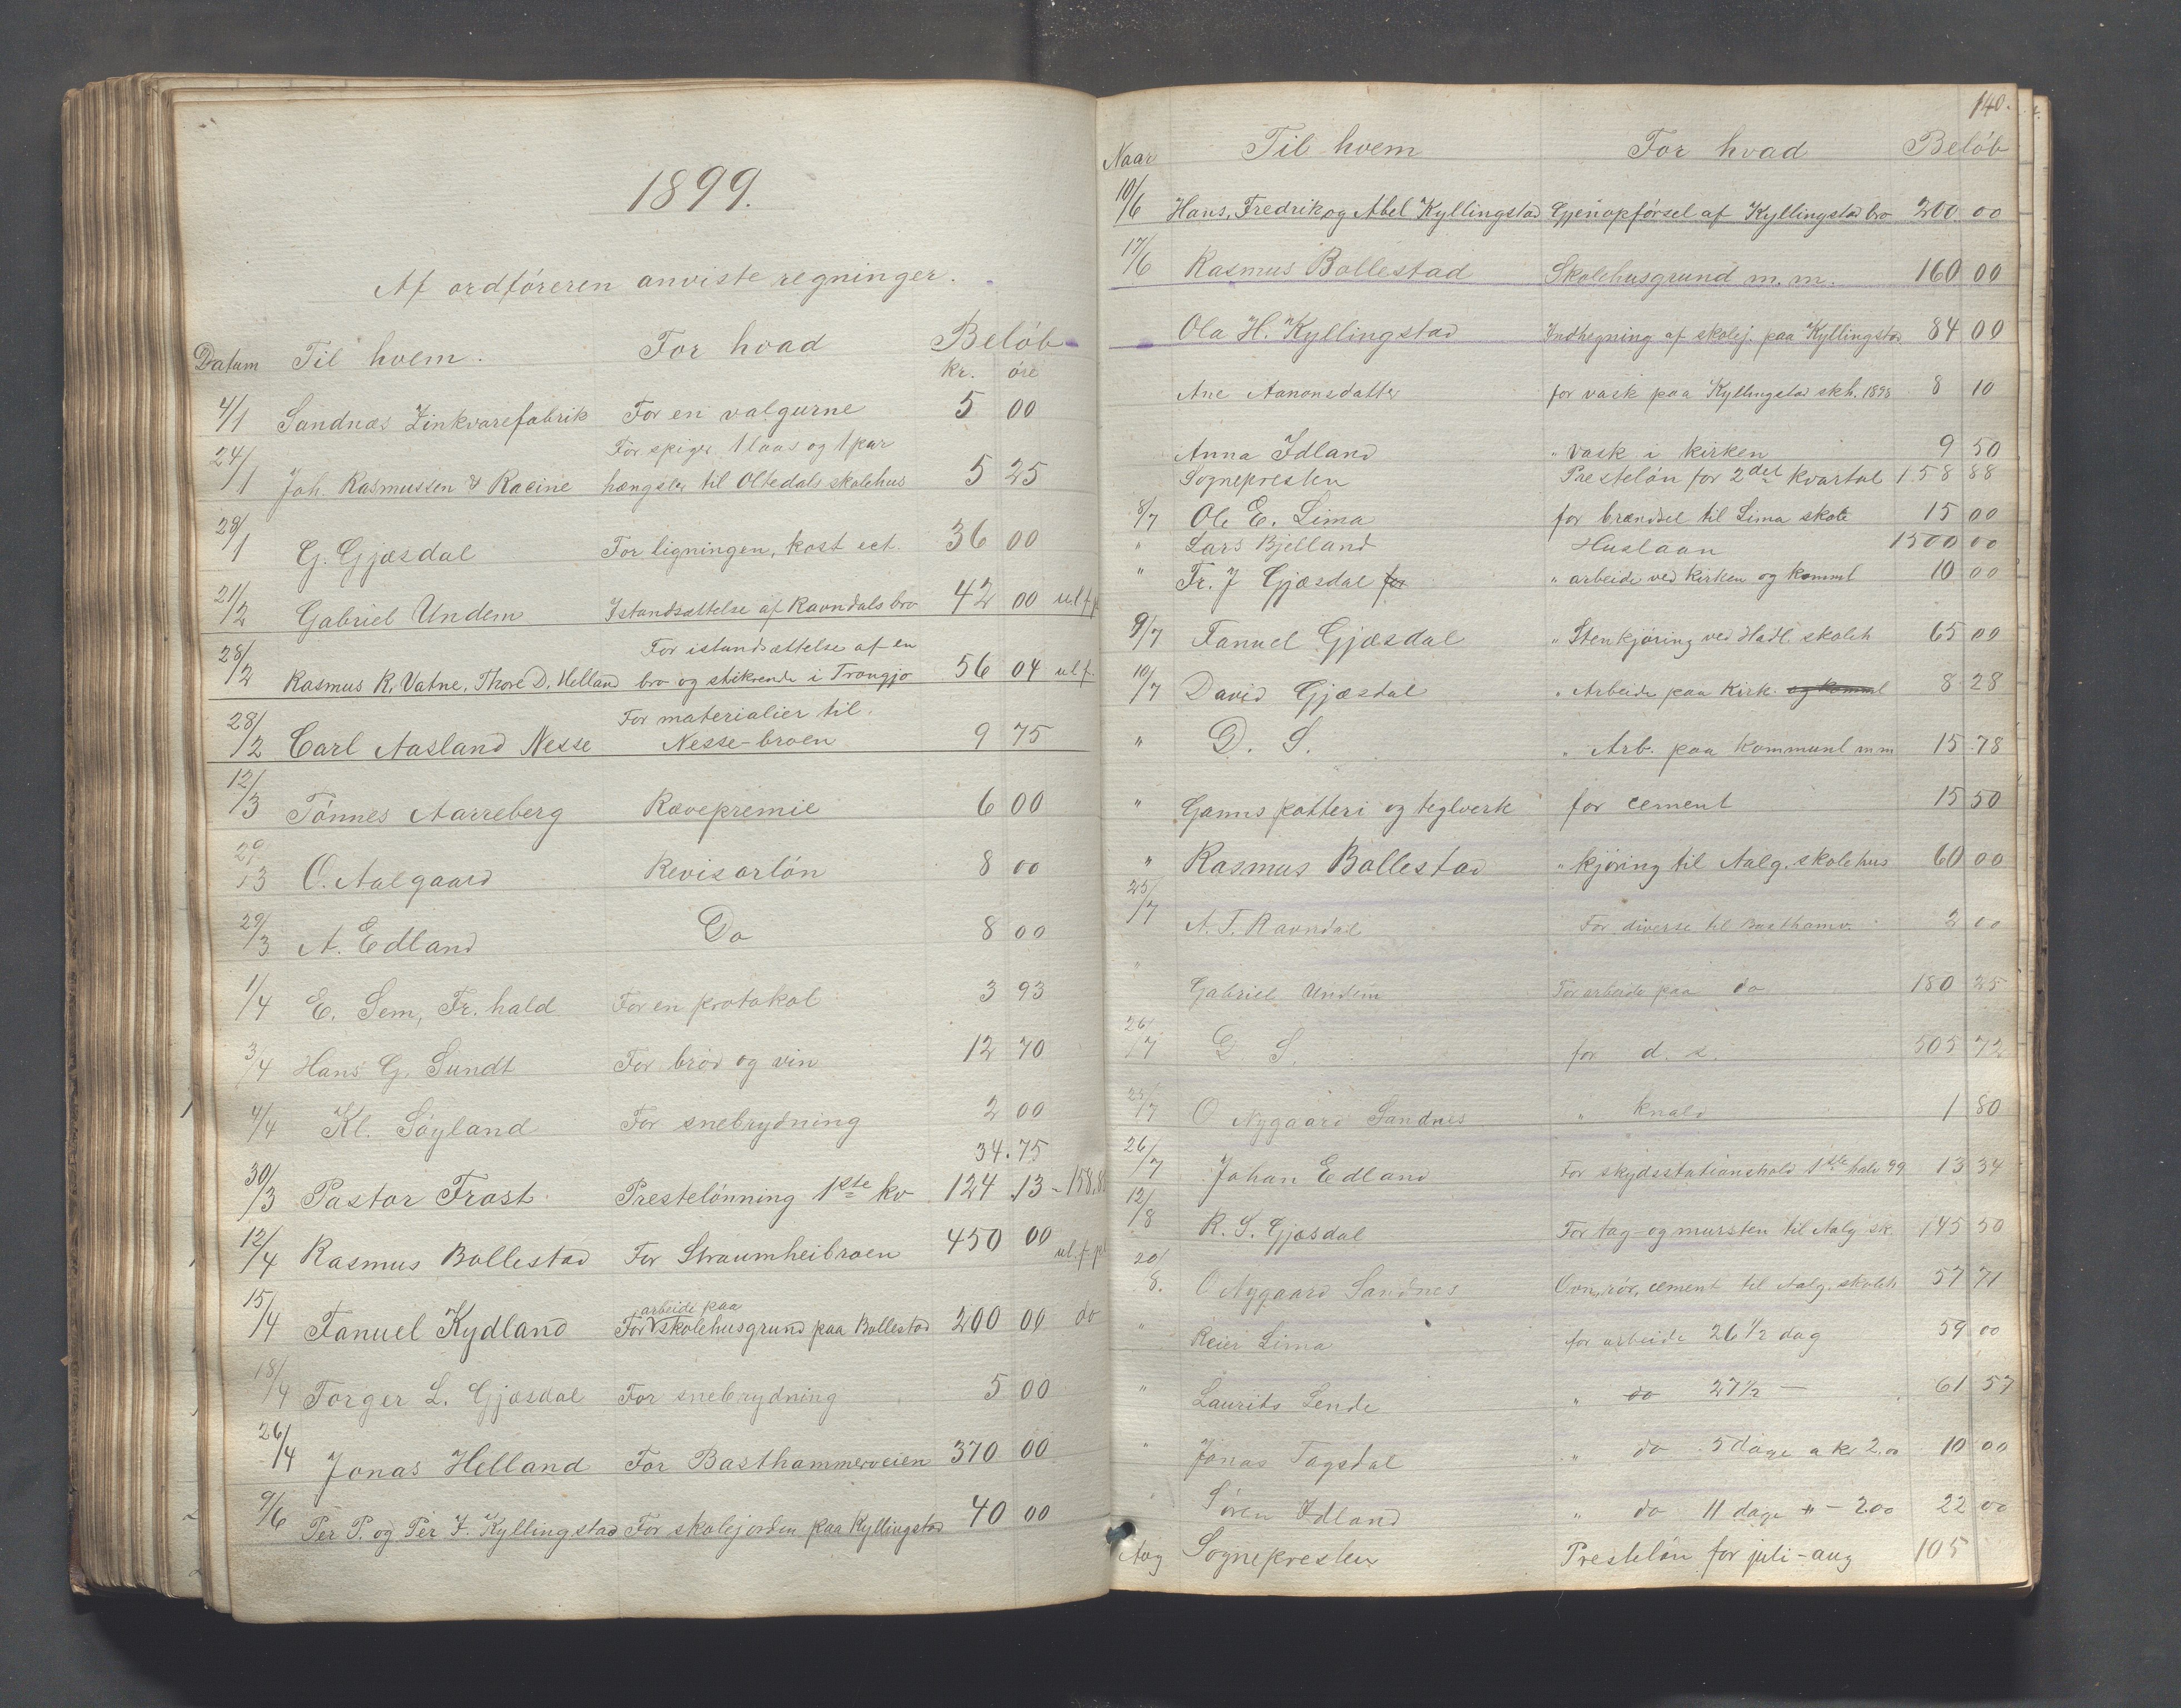 1899.
Af ordføreren anviste regninger.
Datum Til hvem. For hvad Beløb
kr. øre
4/1 Sandnæs Zinkvarefabrik For en valgurne 5 00
For spiger 1 laas og 1 par
24/1 Joh. Rasmussen & Racine hængsler til Oltedals skolehus 5 25
28/1 G. Gjæsdal For ligningen, kost ect. 36 00
21/2 Gabriel Undem Istandsættelse af Ravndals bro 42 00 ul.f.p
For istandsættelse af en
28/2 Rasmus R. Vatne, Thore D. Helland bro og stikrende i Trongjo 56 04 ul.f.
For materialier til
28/2 Carl Aasland Nesse Nesse-broen 9 75
12/3 Tønnes Aarreberg Rævepremie 6 00
29/3 O. Aalgaard Revisorløn 8 00
29/3 A. Edland Do 8 00
1/4 E. Sem, Fr.hald For en protokol 3 93
3/4 Hans G. Sundt For brød og vin 12 70
4/4 Kl. Søyland For snebrydning 2 00
34.75
30/3 Pastor Frost Prestelønning 1ste kv 124.13 - 158,88
12/4 Rasmus Bollestad For Straumheibroen 450 00 ul.f.p
arbeide paa
15/4 Fanuel Kydland For skolehusgrund paa Bollestad 200 00 do
18/4 Torger L. Gjæsdal For snebrydning 5 00
26/4 Jonas Helland For Basthammerveien 370 00
9/6 Per P. og Per F. Kyllingstad For skolejorden paa Kyllingstad 40 00
140.
Naar Til hvem For hvad Beløb
10/6 Hans, Fredrik og Abel Kyllingstad Gjenopførsel af Kyllingstad bro 200.00
17/6 Rasmus Bollestad Skolehusgrund m.m. 160 00
Ola H. Kyllingstad Indhegning af skolej. paa Kyllingstad 84 00
Ane Aanonsdatter for vask paa Kyllingstad skh. 1898 8 10
Anna Idland " vask i kirken 9 50
Sognepresten Presteløn for 2det kvartal 158 88
8/7 Ole E. Lima for brændsel til Lima skole 15 00
" Lars Bjelland Huslaan 1500 00
" Fr. J Gjæsdal for " arbeide ved kirken og komml 10 00
9/7 Fanuel Gjæsdal " Stenkjøring ved Madl. skoleh 65 00
10/7 David Gjæsdal " Arbeide paa Kirk. og komml 8 28
" D. S. " Arb. paa Kommunl mm 15.78
" Ganns potteri og teglverk for cement 15 50
" Rasmus Bollestad " kjøring til Aalg. skolehus 60 00
25/7 A. T. Ravndal For diverse til Basthamv. 2 00
" Gabriel Undem For arbeide paa do 180 25
26/7 D S. for d. s. 505 72
25/7 O Nygaard Sandnes " knald 1 80
26/7 Johan Edland For skydsstationshold 1ste halv 99 13 34
12/8 R. S. Gjæsdal For tag- og mursten til Aalg sk. 145 50
20/8. O Nygaard Sandnes Ovn, rør, cement til Aalg. skoleh 57 71
" Reier Lima for arbeide 26 1/2 dag 59 00
" Laurits Lende " do 27 1/2 — 61 57
" Jonas Tagsdal " do 5 dage a kr 2.00 10 00
Søren Idland " do 11 dage - 2.00 22 00
Aug Sognepresten Presteløn for juli - aug 105